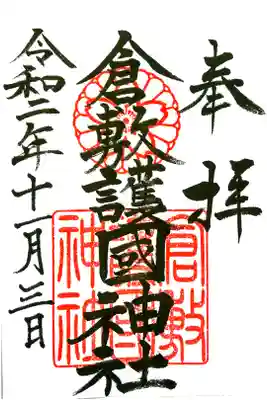 奉拝
倉敷護國神社
令和二年十一月三日
倉敷
神社